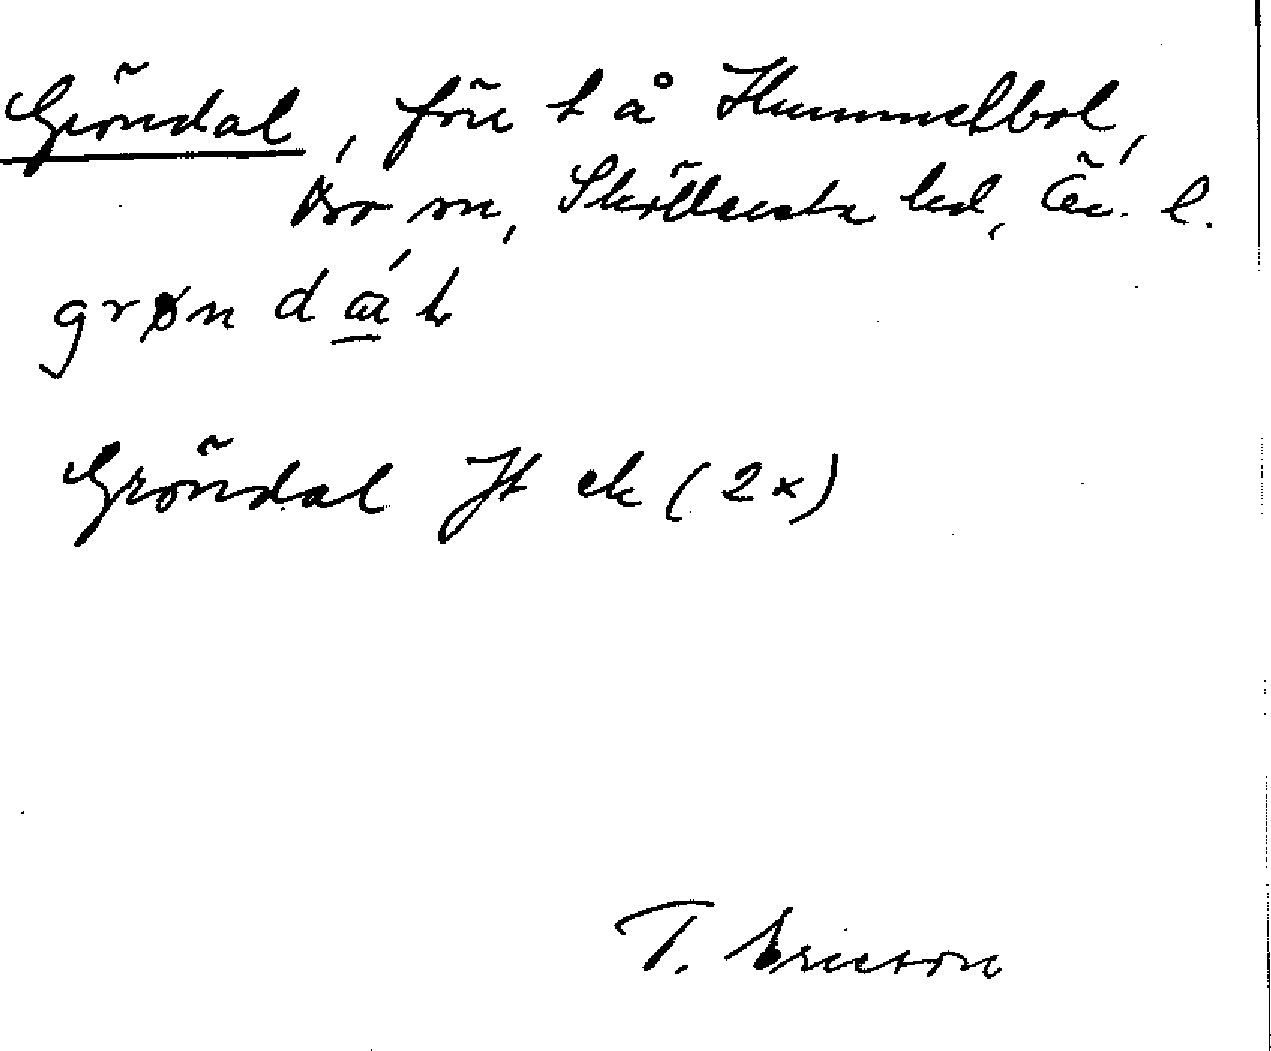 Gröndal, förr t å Hummelbol,
Bo sn, Sköllersta hd, Ör. l.
grøndà̱l
Gröndal Jt ek (2x)
T. Ericson